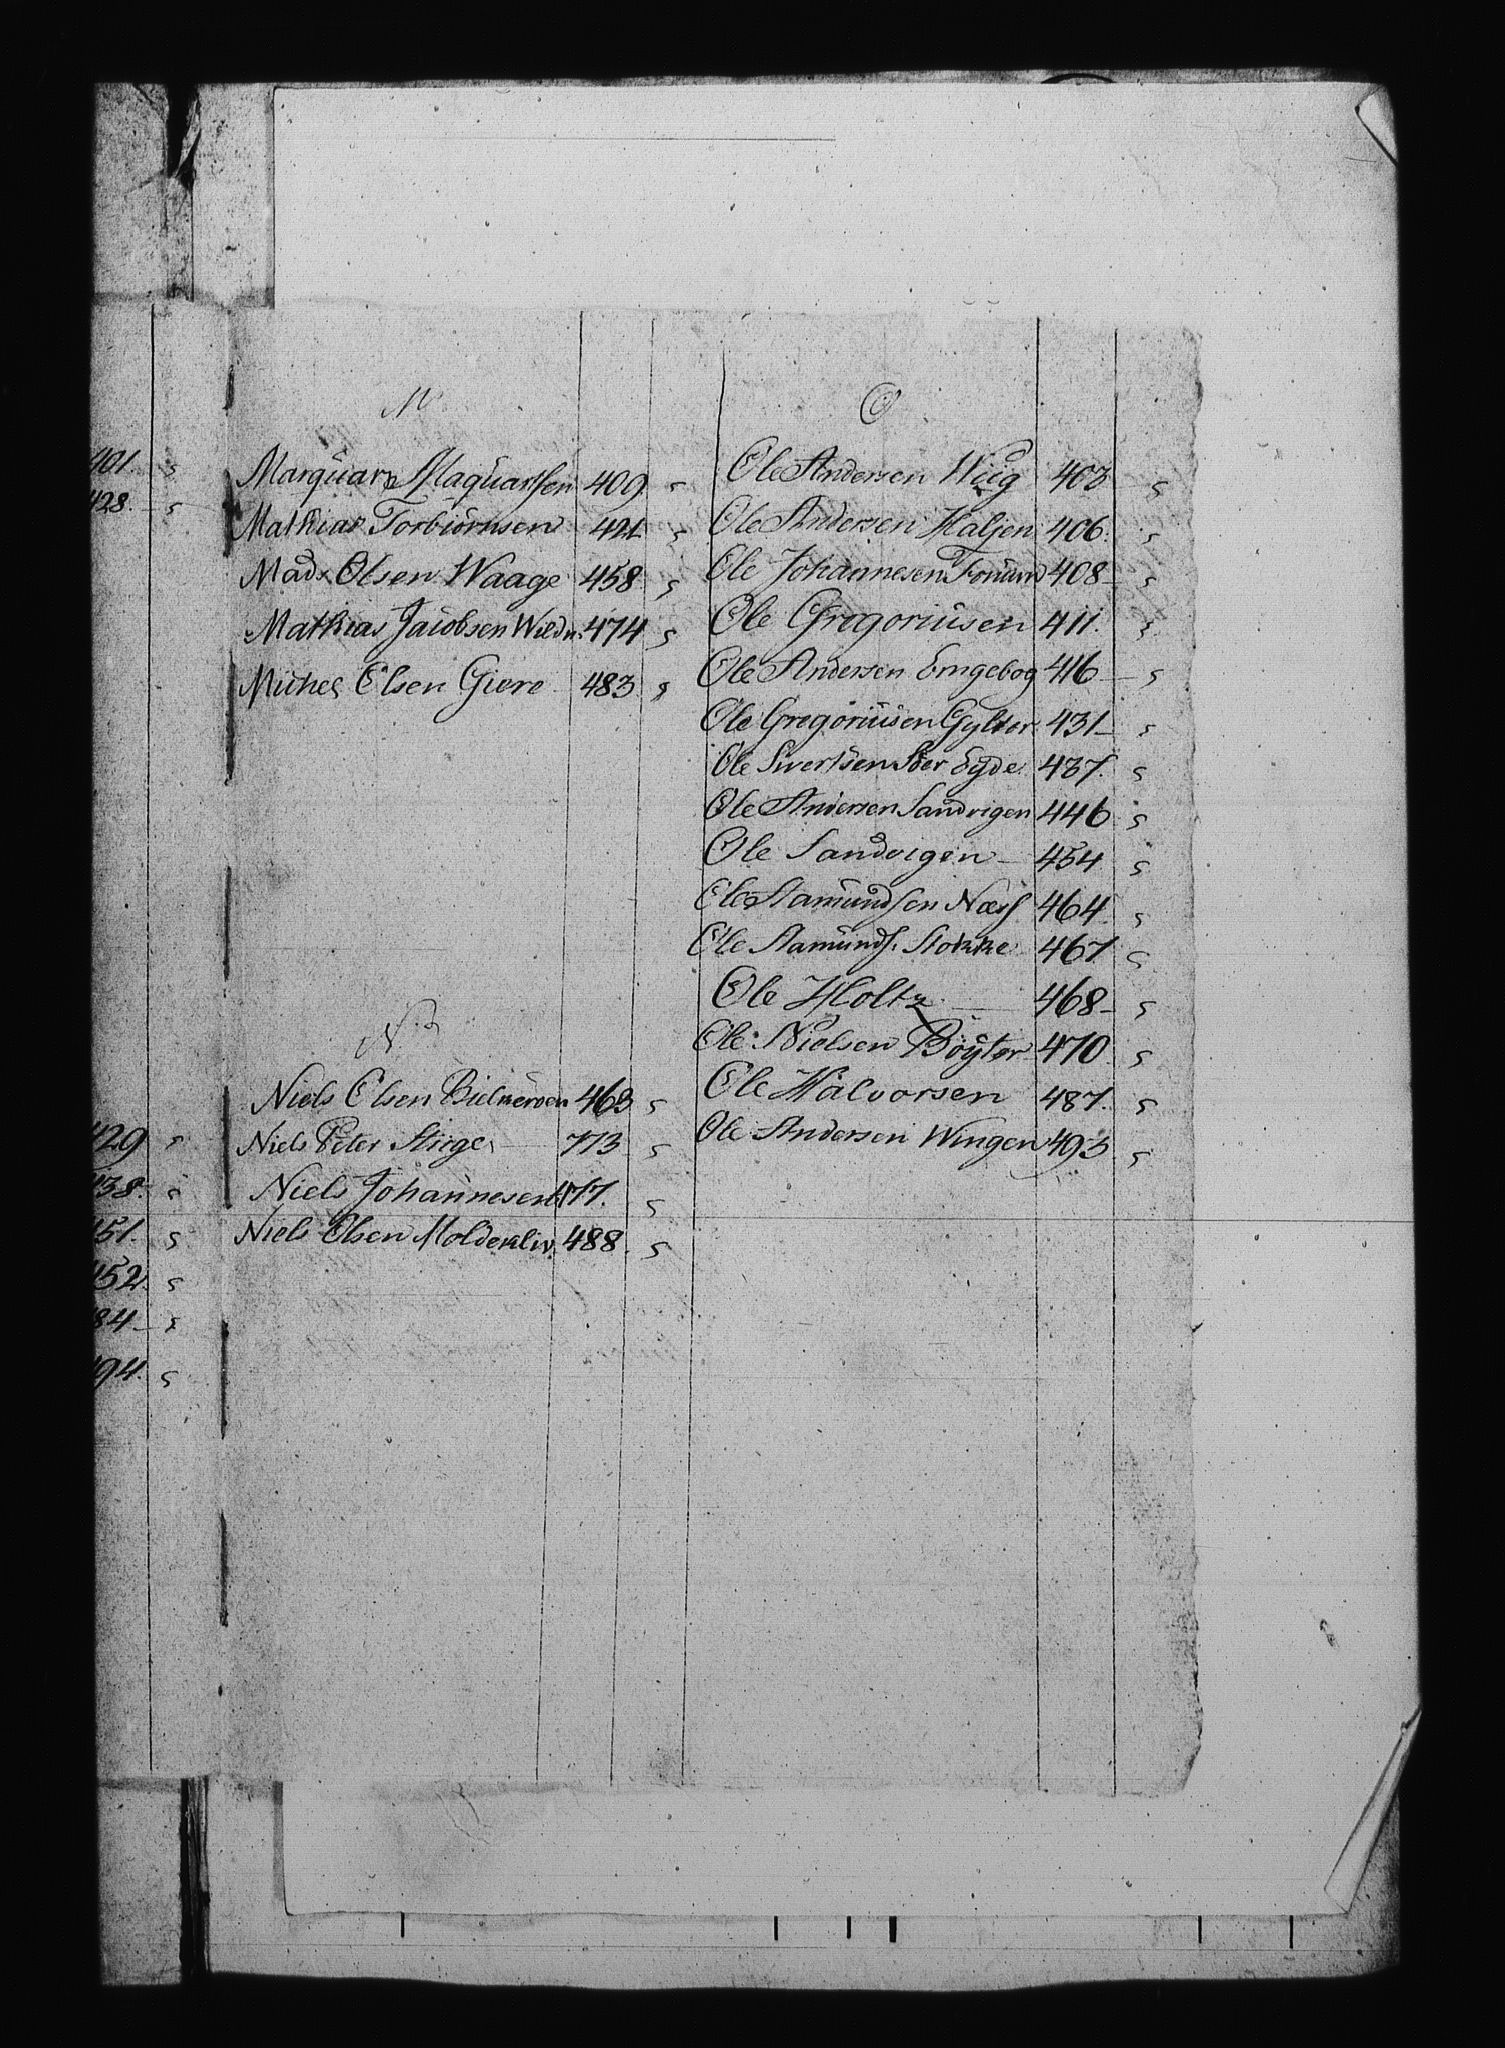 401.
428.
429
438.
451.
452.
484
494.
M
Marquar Maquartsen 409
Mathias Torbiörnsen 421
Mads Olsen Waage 458
Mathias Jacobsen Wildn. 474
Michel Olsen Giere 483
N
Niels Olsen 463
Niels Peter Stirge 773
Niels Johannesen 477.
Niels Olsen Molderliv. 488
O
Ole Andersen Wiig 403
Ole Andersen Haljen 406.
Ole Johannesen 408
Ole Gregoriusen 411.
Ole Andersen Emgebog 416
Ole Gregoriusen Gylter 431
Ole Sivertsen Söer Eyde 437.
Ole Andersen Sandvigen 446
Ole Sandvigen 454
Ole Aamundsen Næss 464
Ole Aamunds. Stokke 467
Ole Holtz 468
Ole Nielsen Böyter 470
Ole Halvorsen 487.
Ole Andersen Wingen 493